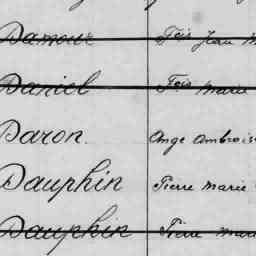 Damour Fcis Jean M
Daniel Fcis Marie
Daron Ange Ambrois
Dauphin Pierre Marie
Dauphin Pierre Marie